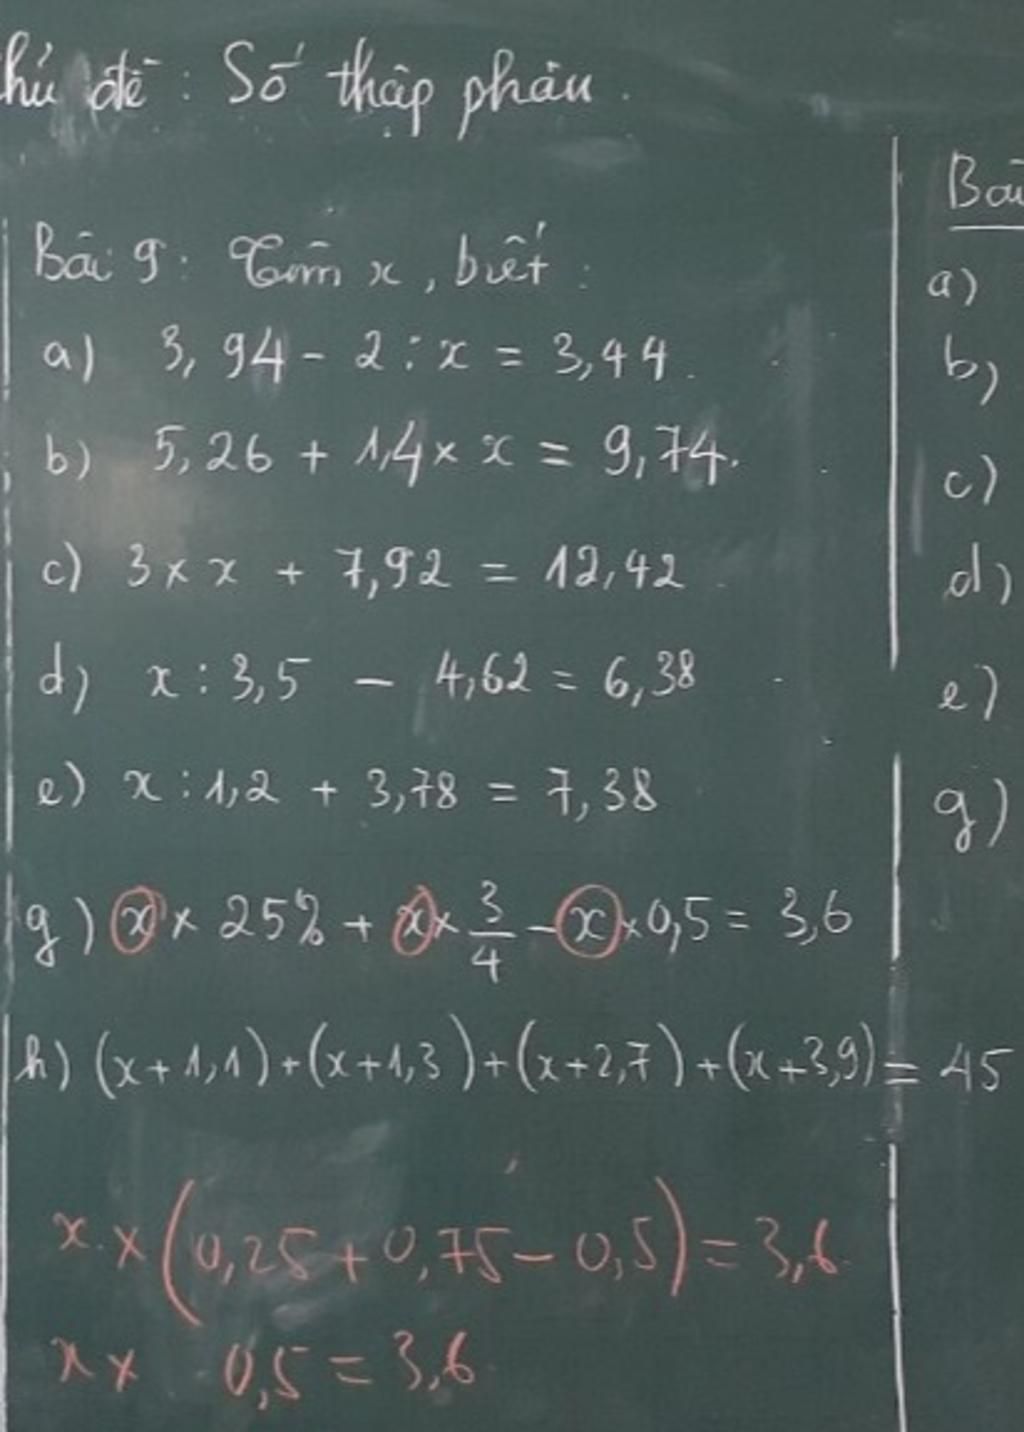 hủ đề : Số thập phân.
Bài 9 : Tìm x, biết :
a) 3,94 - 2 : x = 3,44.
b) 5,26 + 1,4 × x = 9,74.
c) 3 × x + 7,92 = 12,42
d) x : 3,5 - 4,62 = 6,38
e) x : 1,2 + 3,78 = 7,38
g) x × 25% + x × 3/4 - x × 0,5 = 3,6
h) (x + 1,1) + (x + 1,3) + (x + 2,7) + (x + 3,9) = 45
x × (0,25 + 0,75 - 0,5) = 3,6.
x × 0,5 = 3,6
Bài
a)
b)
c)
d)
e)
g)